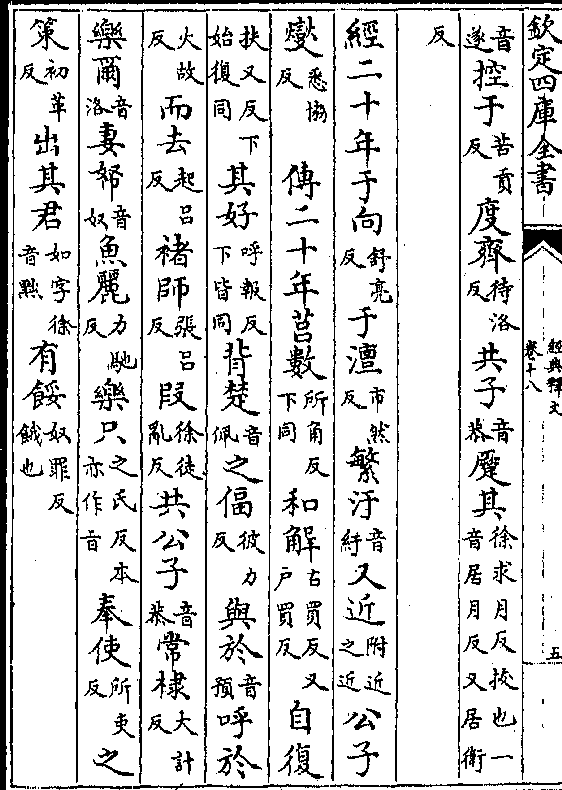 欽定四庫全書 經典釋文卷十八 五
音遂控于苦貢反度齊待洛反共子音恭蹷其徐求月反挍也一音居月反又居衛
反
經二十年于向舒亮反于澶市然反繁汙音紆又近附近之近公子
燮悉協反 傳二十年莒數所角反下同和解古買反又戶買反自復
扶又反下始復同其好呼報反下皆同背楚音佩之偪彼力反與於音預呼於
火故反而去起呂反褚師張呂反段徐徒亂反共公子音恭常棣大計反
樂爾音洛妻帑音奴魚麗力馳反樂只之氏反本亦作旨奉使所吏反之
策初革反出其君如字徐音黜有餒奴罪反餓也